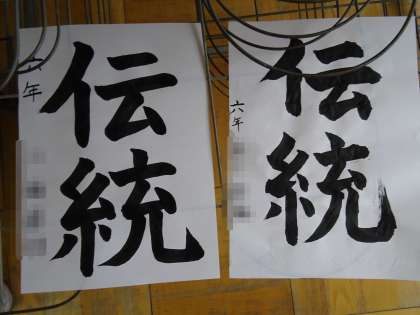 伝統
六年
伝統
六年